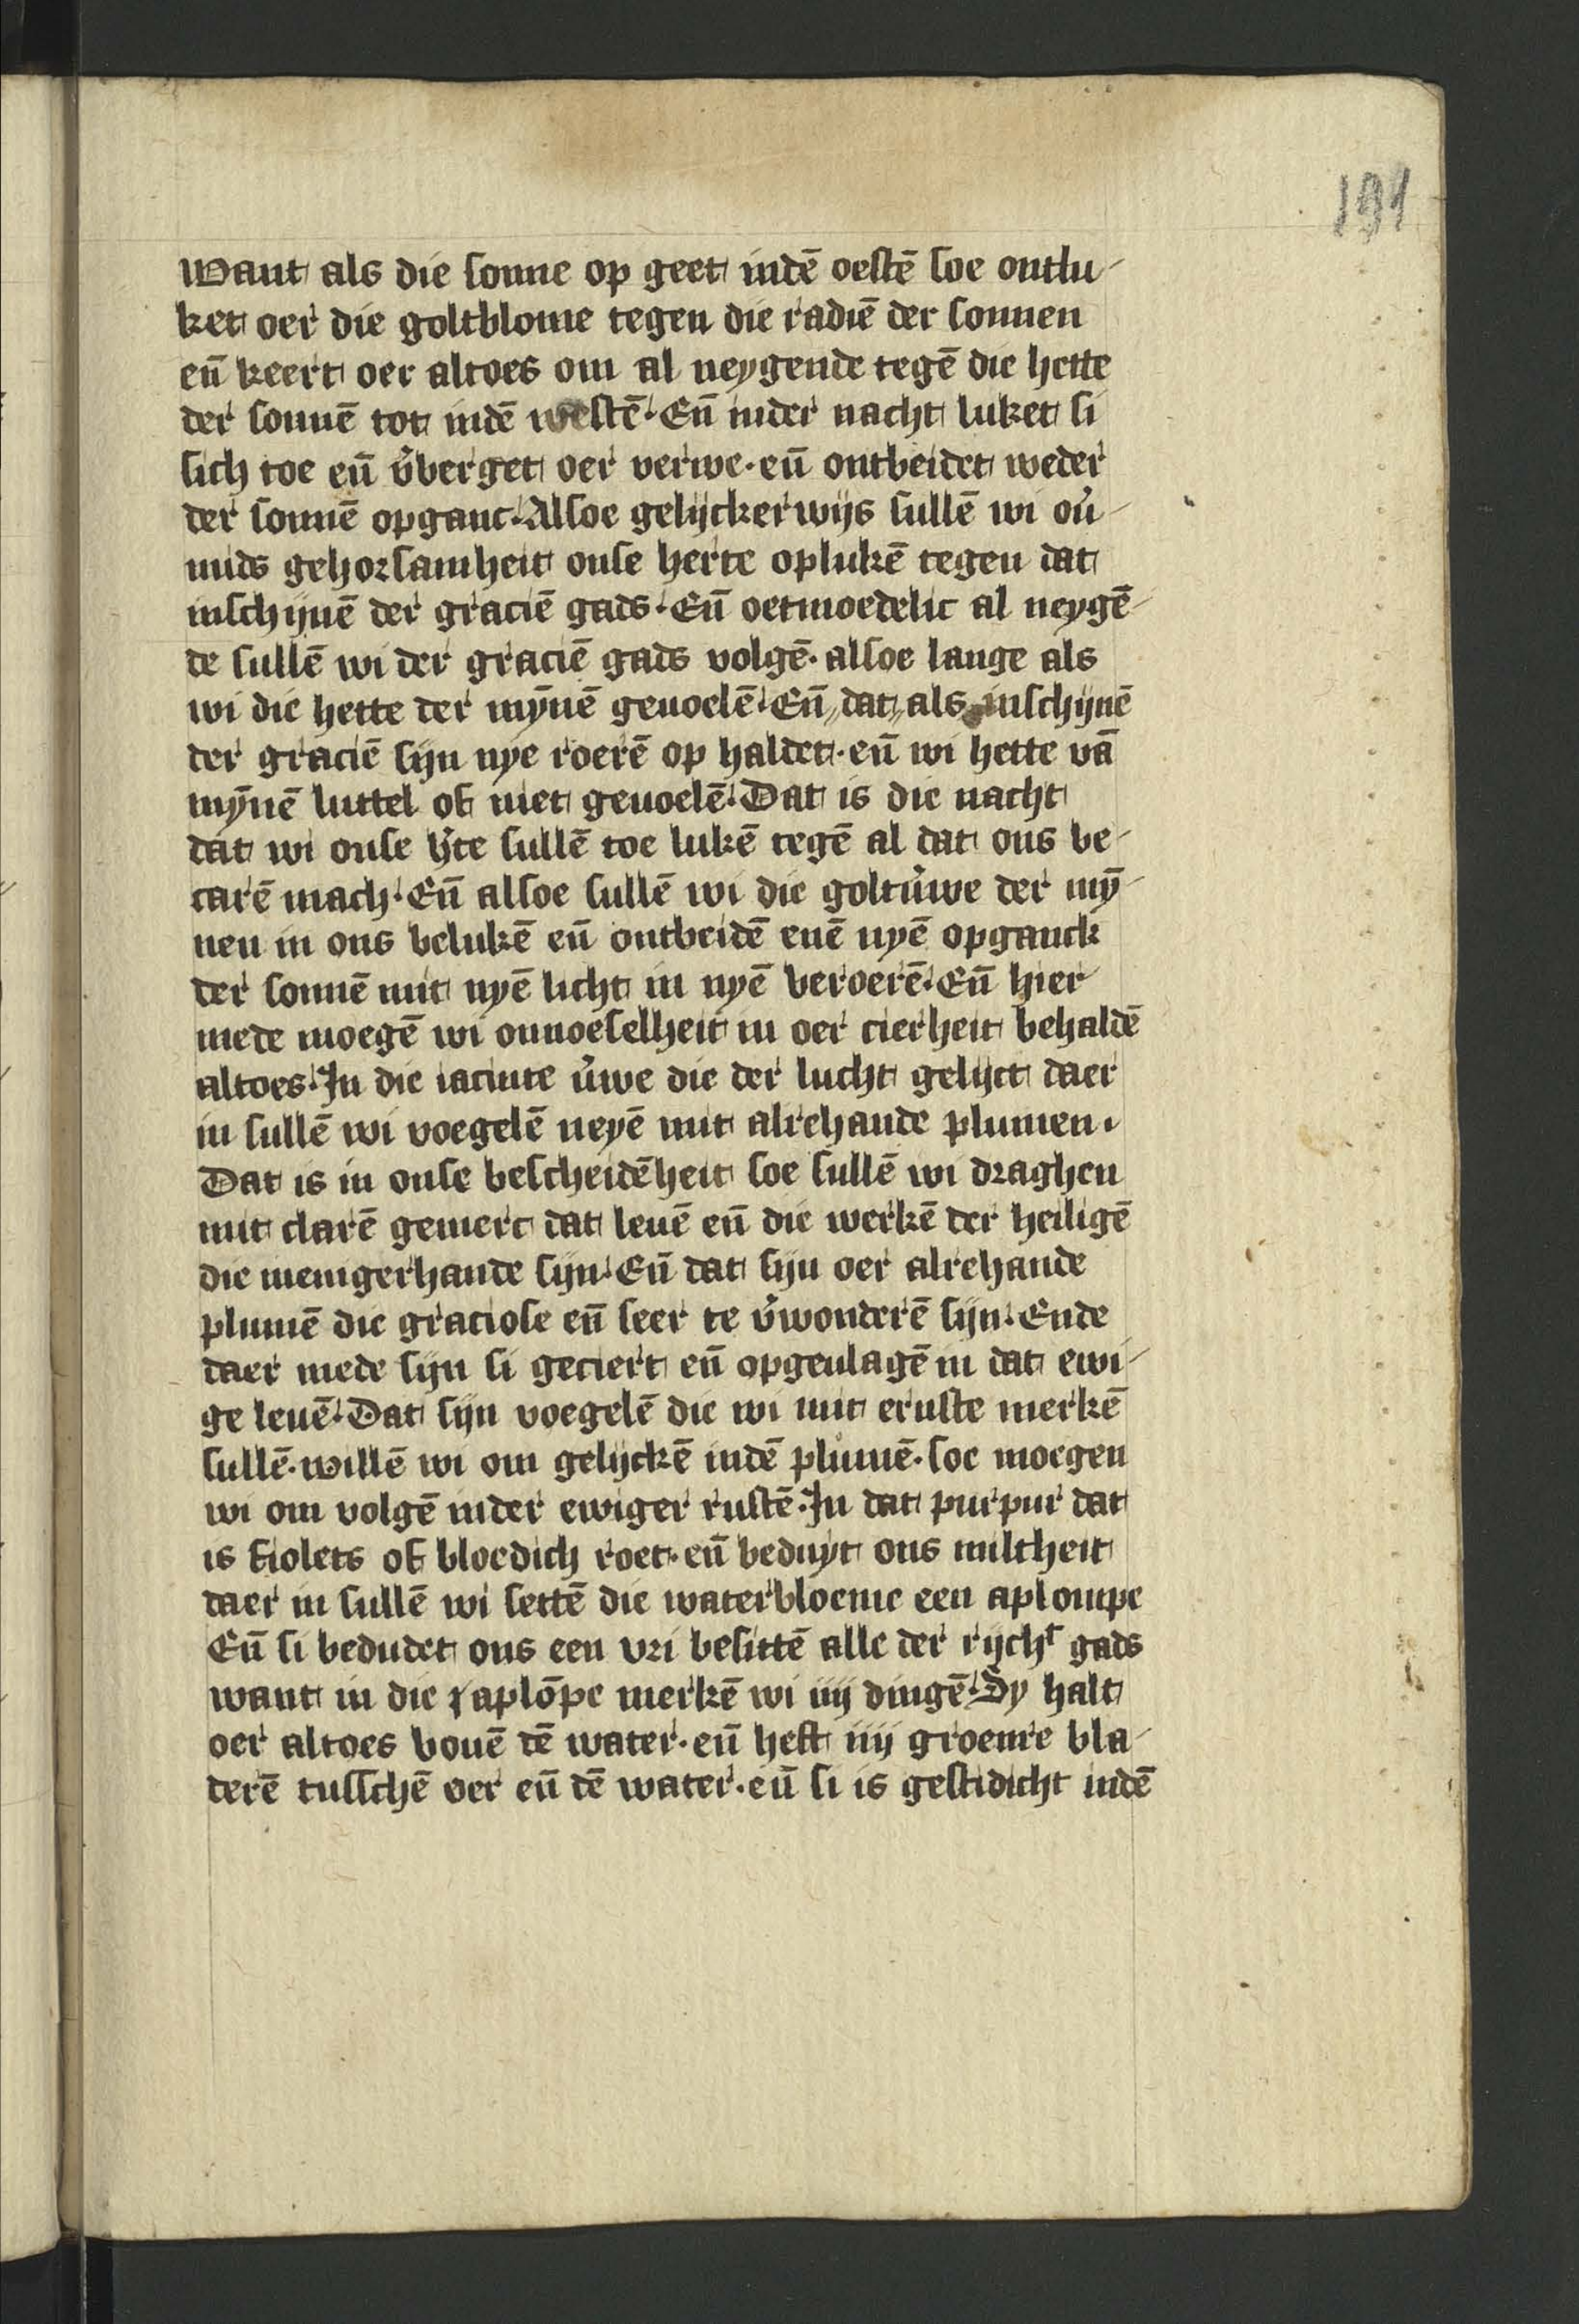 191
Want als die sonne op geet indē oestē soe ontlu-
ket oer die goltblome tegen die radiē der sonnen
eñ keert oer altoes om al neygende tegē die hette
der sonnē tot indē westē. Eñ inder nacht luket si
sich toe eñ v̉berget oer verwe. eñ ontbeidet weder
der sonnē opganc. Alsoe gelijckerwijs sullē wi ov̉-
mids gehorsamheit onse herte oplukē tegen dat
inschijnē der graciē gads. Eñ oetmoedelic al neygē-
de sullē wi der graciē gads volgē. alsoe lange als
wi die hette der mȳnē geuoelē. Eñ dat als inschijnē
der graciē sijn nye roerē op haldet. eñ wi hette vā
mȳnē luttel of niet geuoelē. Dat is die nacht
dat wi onse h̉te sullē toe lukē tegē al dat ons be-
carē mach. Eñ alsoe sullē wi die goltv̉we der mȳ-
nen in ons belukē eñ ontbeidē enē nyē opganck
der sonnē mit nyē licht in nyē beroerē. Eñ hier
mede moegē wi onnoeselheit in oer cierheit behaldē
altoes. In die iacinte v̉we die der lucht gelijct daer
in sullē wi voegelē neyē mit alrehande plumen.
Dat is in onse bescheidēheit soe sullē wi draghen
mit clarē gemerc dat leuē eñ die werkē der heiligē
die menigerhande sijn. Eñ dat sijn oer alrehande
plumē die graciose eñ seer te v̉wonderē sijn. Ende
daer mede sijn si geciert eñ opgeulagē in dat ewi-
ge leuē. Dat sijn voegelē die wi mit ernste merkē
sullē. willē wi om gelijckē indē plumē. soe moegen
wi om volgē inder ewiger rustē. In dat purpur dat
is fiolets of bloedich roet. eñ beduyt ons miltheit
daer in sullē wi settē die waterbloeme een aplompe
Eñ si bedudet ons een vri besittē alle der rijchͭ gads
want in die aplōpe merkē wi iiij dingē. Sy halt
oer altoes bouē dē water. eñ heft iiij groenre bla-
derē tusschē oer eñ dē water. eñ si is gestidicht indē